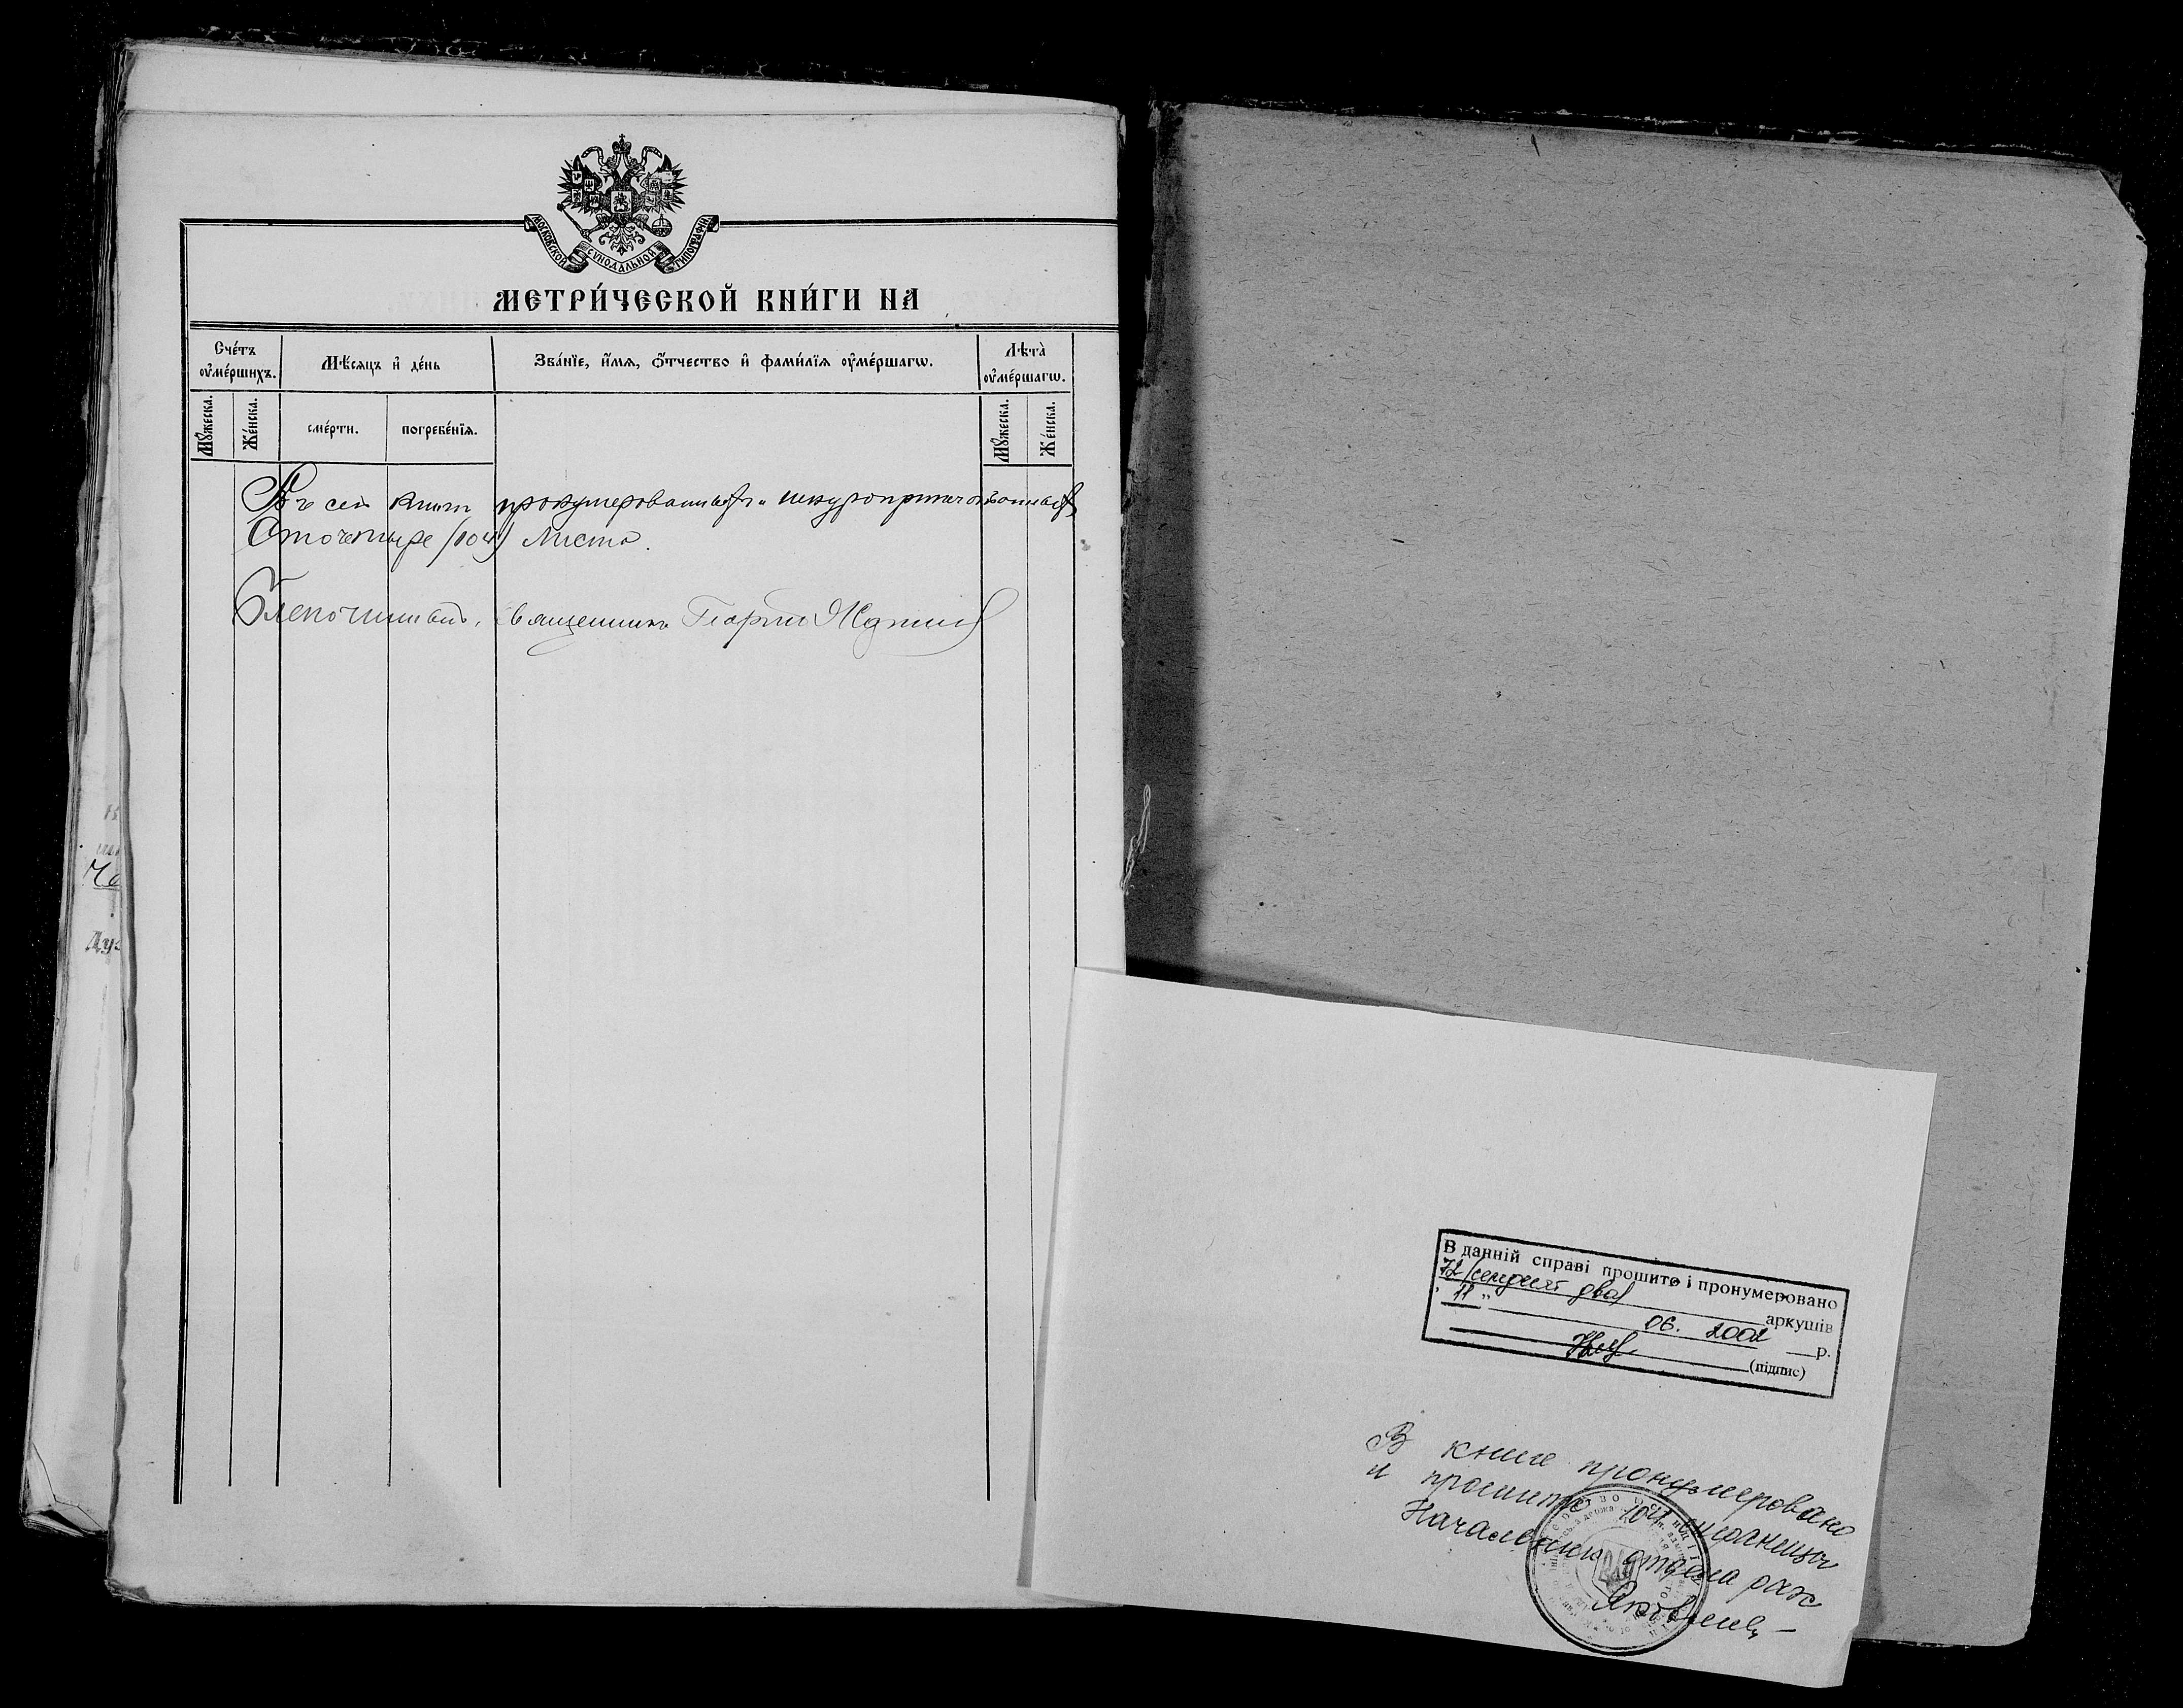 МОСКОВСКОЙ СѴНОДАЛЬНОЙ ТИПОГРАФІИ
МЕТРИ́ЧЕСКОЙ КНИ́ГИ НА
Сче́тъ ᲂу҆ме́ршихъ.
Мѣ́сяцъ и҆ де́нь
Зва́нїе, и҆́мѧ, ѻ҆́тчество и҆ фами́лїѧ ᲂу҆ме́ршагѡ.
Лѣта̀ ᲂу҆ме́ршагѡ.
Мꙋ́жеска.
Же́нска.
сме́рти.
погребе́нїѧ.
Мꙋ́жеска.
Же́нска.
Въ сей книги пронумерованныхъ и шнуроприпечатанныхъ
Сто четыре (104) листа.
Священникъ Георгій
Че
Дух
В данній справі прошито і пронумеровано
72 (семдесят два) аркушів
" 11 " 06. 2002 р.
(підпис)
В книге пронумеровано
и прошито 104 страницы
Начальник отдела рагс